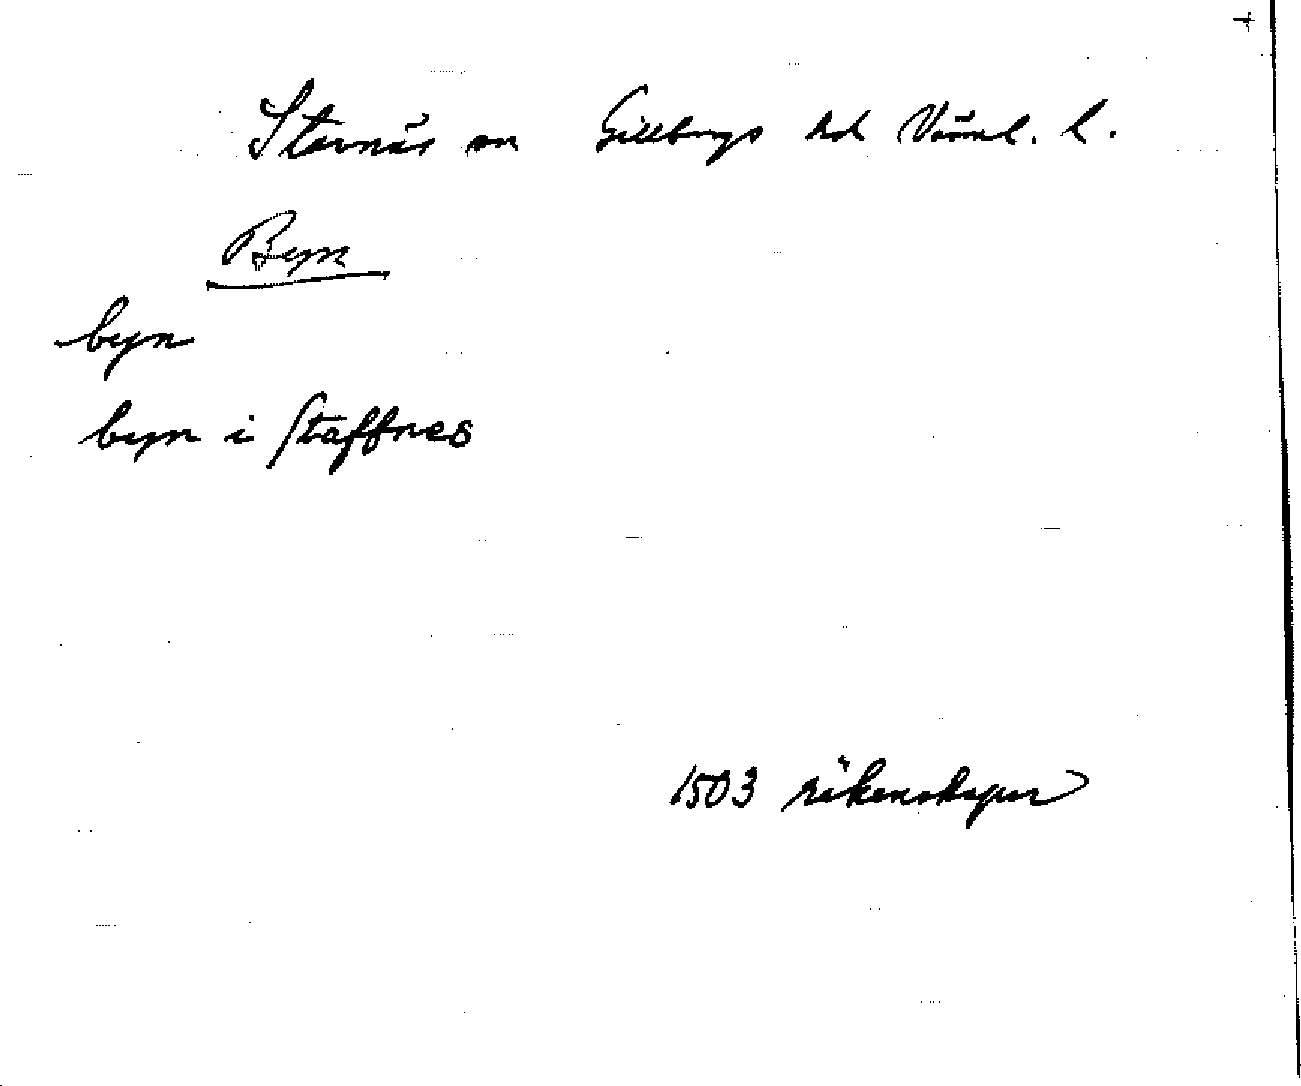 Stavnäs sn Gillbergs hd Värml. l.
Byn
byn
byn i Staffnes
1503 räkenskaper